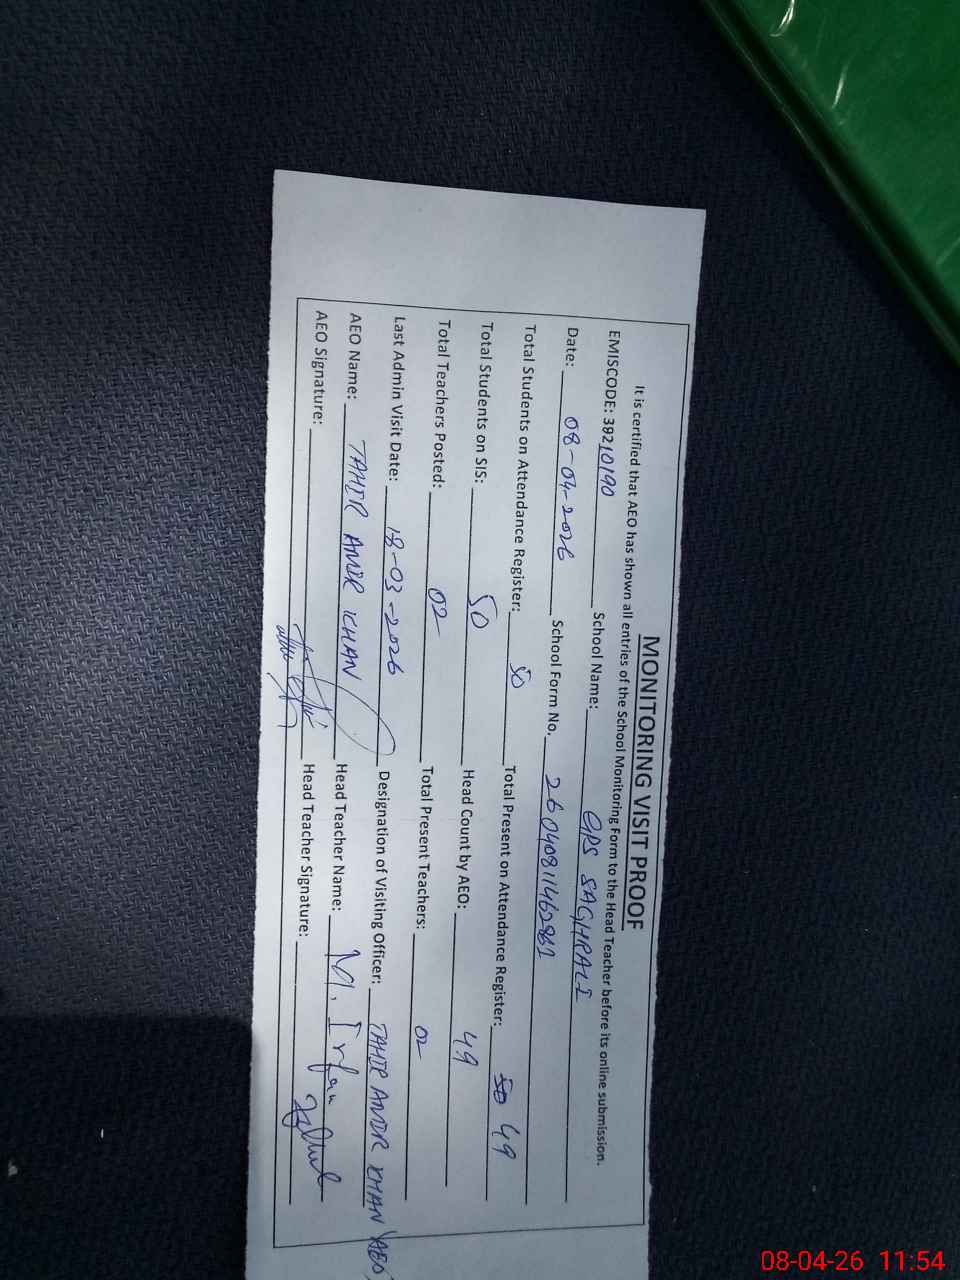 MONITORING VISIT PROOF
It is certified that AEO has shown all entries of the School Monitoring Form to the Head Teacher before its online submission.
EMISCODE: 39210190 School Name: GPS SAGHRALI
Date: 08-04-2026 School Form No. 260408114628
Total Students on Attendance Register: 50 Total Present on Attendance Register: 50 49
Total Students on SIS: 50 Head Count by AEO: 49
Total Teachers Posted: 02 Total Present Teachers: 02
Last Admin Visit Date: 18-03-2026 Designation of Visiting Officer: TAHIR AMIR KHAN AEO
AEO Name: TAHIR AMIR KHAN Head Teacher Name: M. Irfan
AEO Signature: Head Teacher Signature:
08-04-26 11:54